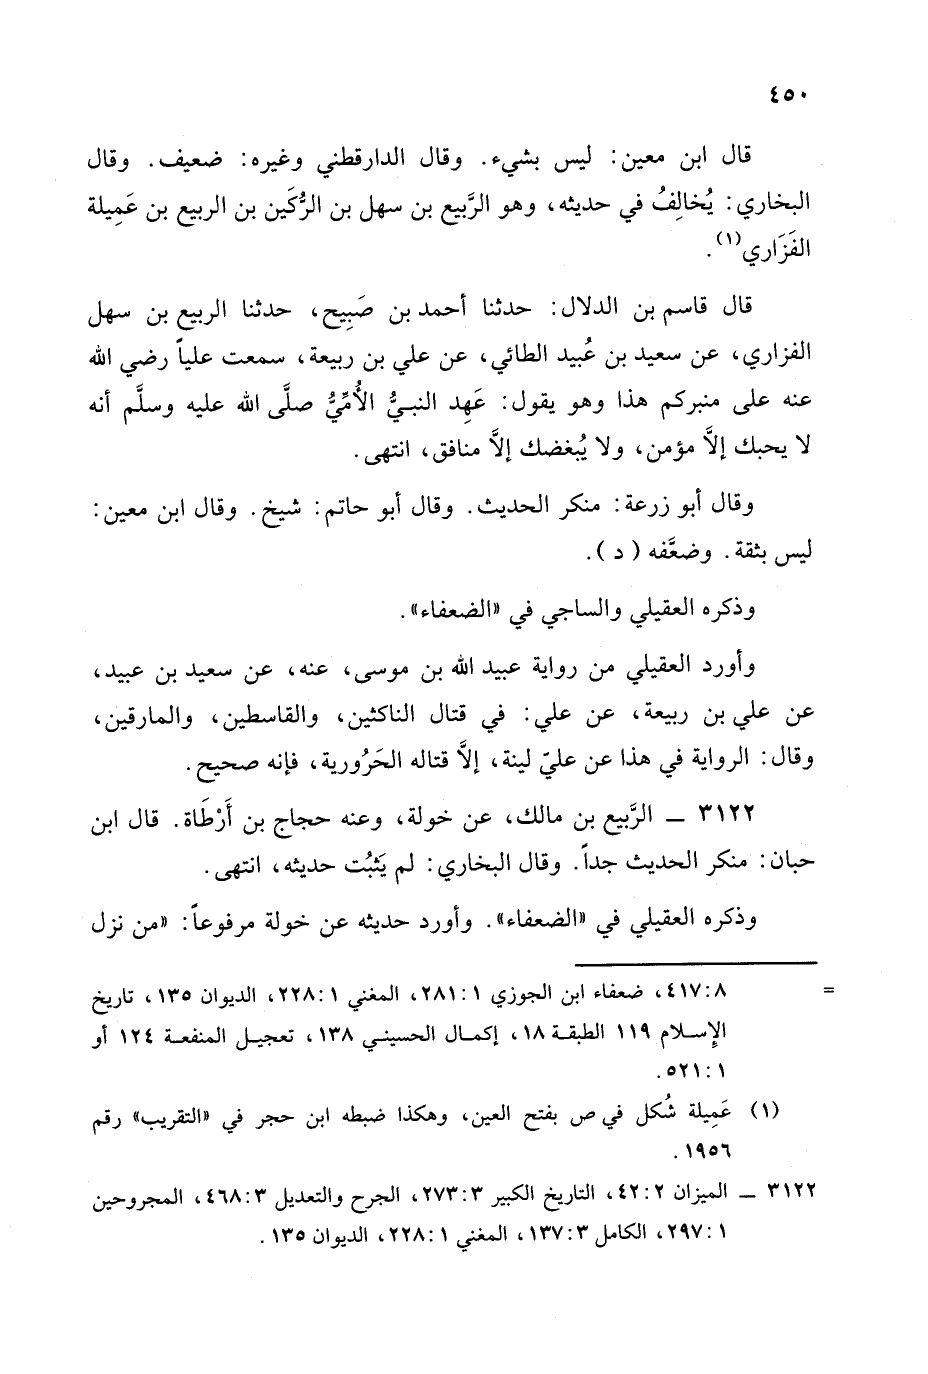 ٤٥٠
قال ابن معين: ليس بشيء. وقال الدارقطني وغيره: ضعيف. وقال
البخاري: يُخالِفُ في حديثه، وهو الرَّبيع بن سهل بن الرُّكَين بن الربيع بن عَمِيلة
الفَزَاري(١).
قال قاسم بن الدلال: حدثنا أحمد بن صَبِيح، حدثنا الربيع بن سهل
الفزاري، عن سعيد بن عُبيد الطائي، عن علي بن ربيعة، سمعت علياً رضي الله
عنه على منبركم هذا وهو يقول: عَهِد النبيُّ الأُمِّيُّ صلَّى الله عليه وسلَّم أنه
لا يحبك إلاَّ مؤمن، ولا يُبغضك إلاَّ منافق، انتهى.
وقال أبو زرعة: منكر الحديث. وقال أبو حاتم: شيخ. وقال ابن معين:
ليس بثقة. وضعَّفه ( د ).
وذكره العقيلي والساجي في «الضعفاء».
وأورد العقيلي من رواية عبيد الله بن موسى، عنه، عن سعيد بن عبيد،
عن علي بن ربيعة، عن علي: في قتال الناكثين، والقاسطين، والمارقين،
وقال: الرواية في هذا عن عليّ لينة، إلاَّ قتاله الحَرُورية، فإنه صحيح.
٣١٢٢ ــ الرَّبيع بن مالك، عن خولة، وعنه حجاج بن أَرْطَاة. قال ابن
حبان: منكر الحديث جداً. وقال البخاري: لم يَثبُت حديثه، انتهى.
وذكره العقيلي في «الضعفاء». وأورد حديثه عن خولة مرفوعاً: «من نزل
= ٨:٤١٧، ضعفاء ابن الجوزي ١:٢٨١، المغني ١:٢٢٨، الديوان ١٣٥، تاريخ
الإسلام ١١٩ الطبقة ١٨، إكمال الحسيني ١٣٨، تعجيل المنفعة ١٢٤ أو
١:٥٢١.
(١) عَمِيلة شُكل في ص بفتح العين، وهكذا ضبطه ابن حجر في «التقريب» رقم
١٩٥٦.
٣١٢٢ ــ الميزان ٢:٤٢، التاريخ الكبير ٣:٢٧٣، الجرح والتعديل ٣:٤٦٨، المجروحين
١:٢٩٧، الكامل ٣:١٣٧، المغني ١:٢٢٨، الديوان ١٣٥.